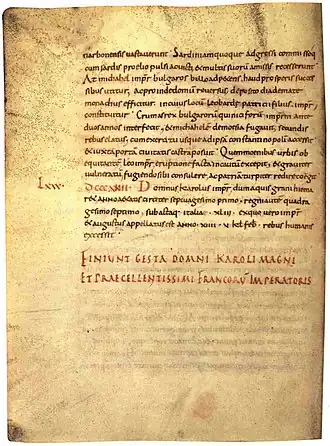 narbonensis vastaverunt. Sardiniam quoque adgressi commisso q
cum sardis proelio pulsi ac victi, & multis suorum amissis recesserunt.
At michahel impr bulgaros bello ad&ens, haud prosperis succes
sibus utitur, ac proinde domum reversus deposito diademate
monachus efficitur. in cuius locum leo bardae patricii filius impr
constituitur. Crumas rex bulgarorum qui niciforum imprm ante
duos annos interfecit, & michahelem de moesia fugavit, secundis
rebus elatus, cum exercitu usque ad ipsam constantinopolim accessit
& iuxta portam civitatis castra posuit. Quem moenibus urbis ob
equitantem leo impr eruptione facta incautum excepit, & graviter
vulneratum, fugiendo sibi consulere, ac patriam turpiter redire coegit
LXX. DCCCXIIII. Domnus karolus impr dum aquisgrani hiema
r& anno aetatis circiter septuagesimo primo, regni autem quadra
gesimo septimo, subactaeq. italiae .XLIII. ex quo vero impr
& augustus appellatus est anno .XIIII. V. kl. feb. rebus humanis
excessit.
FINIUNT GESTA DOMNI KAROLI MAGNI
ET PRAECELLENTISSIMI FRANCORU IMPERATORIS